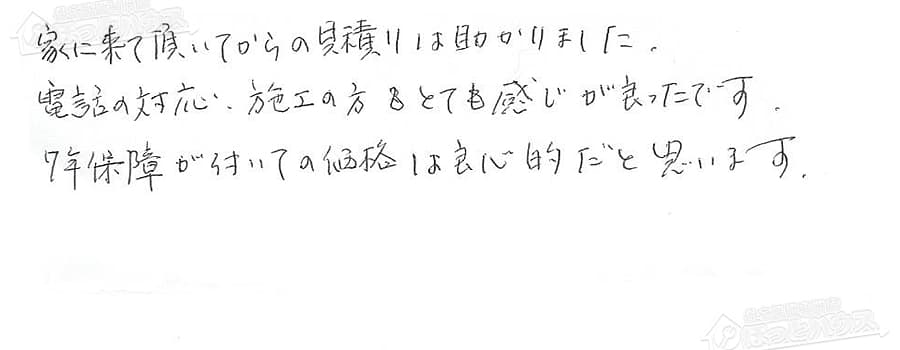 家に来て頂いてからの見積りは助かりました.
電話の対応、施工の方もとても感じが良ったです.
7年保障が付いての価格は良心的だと思います.